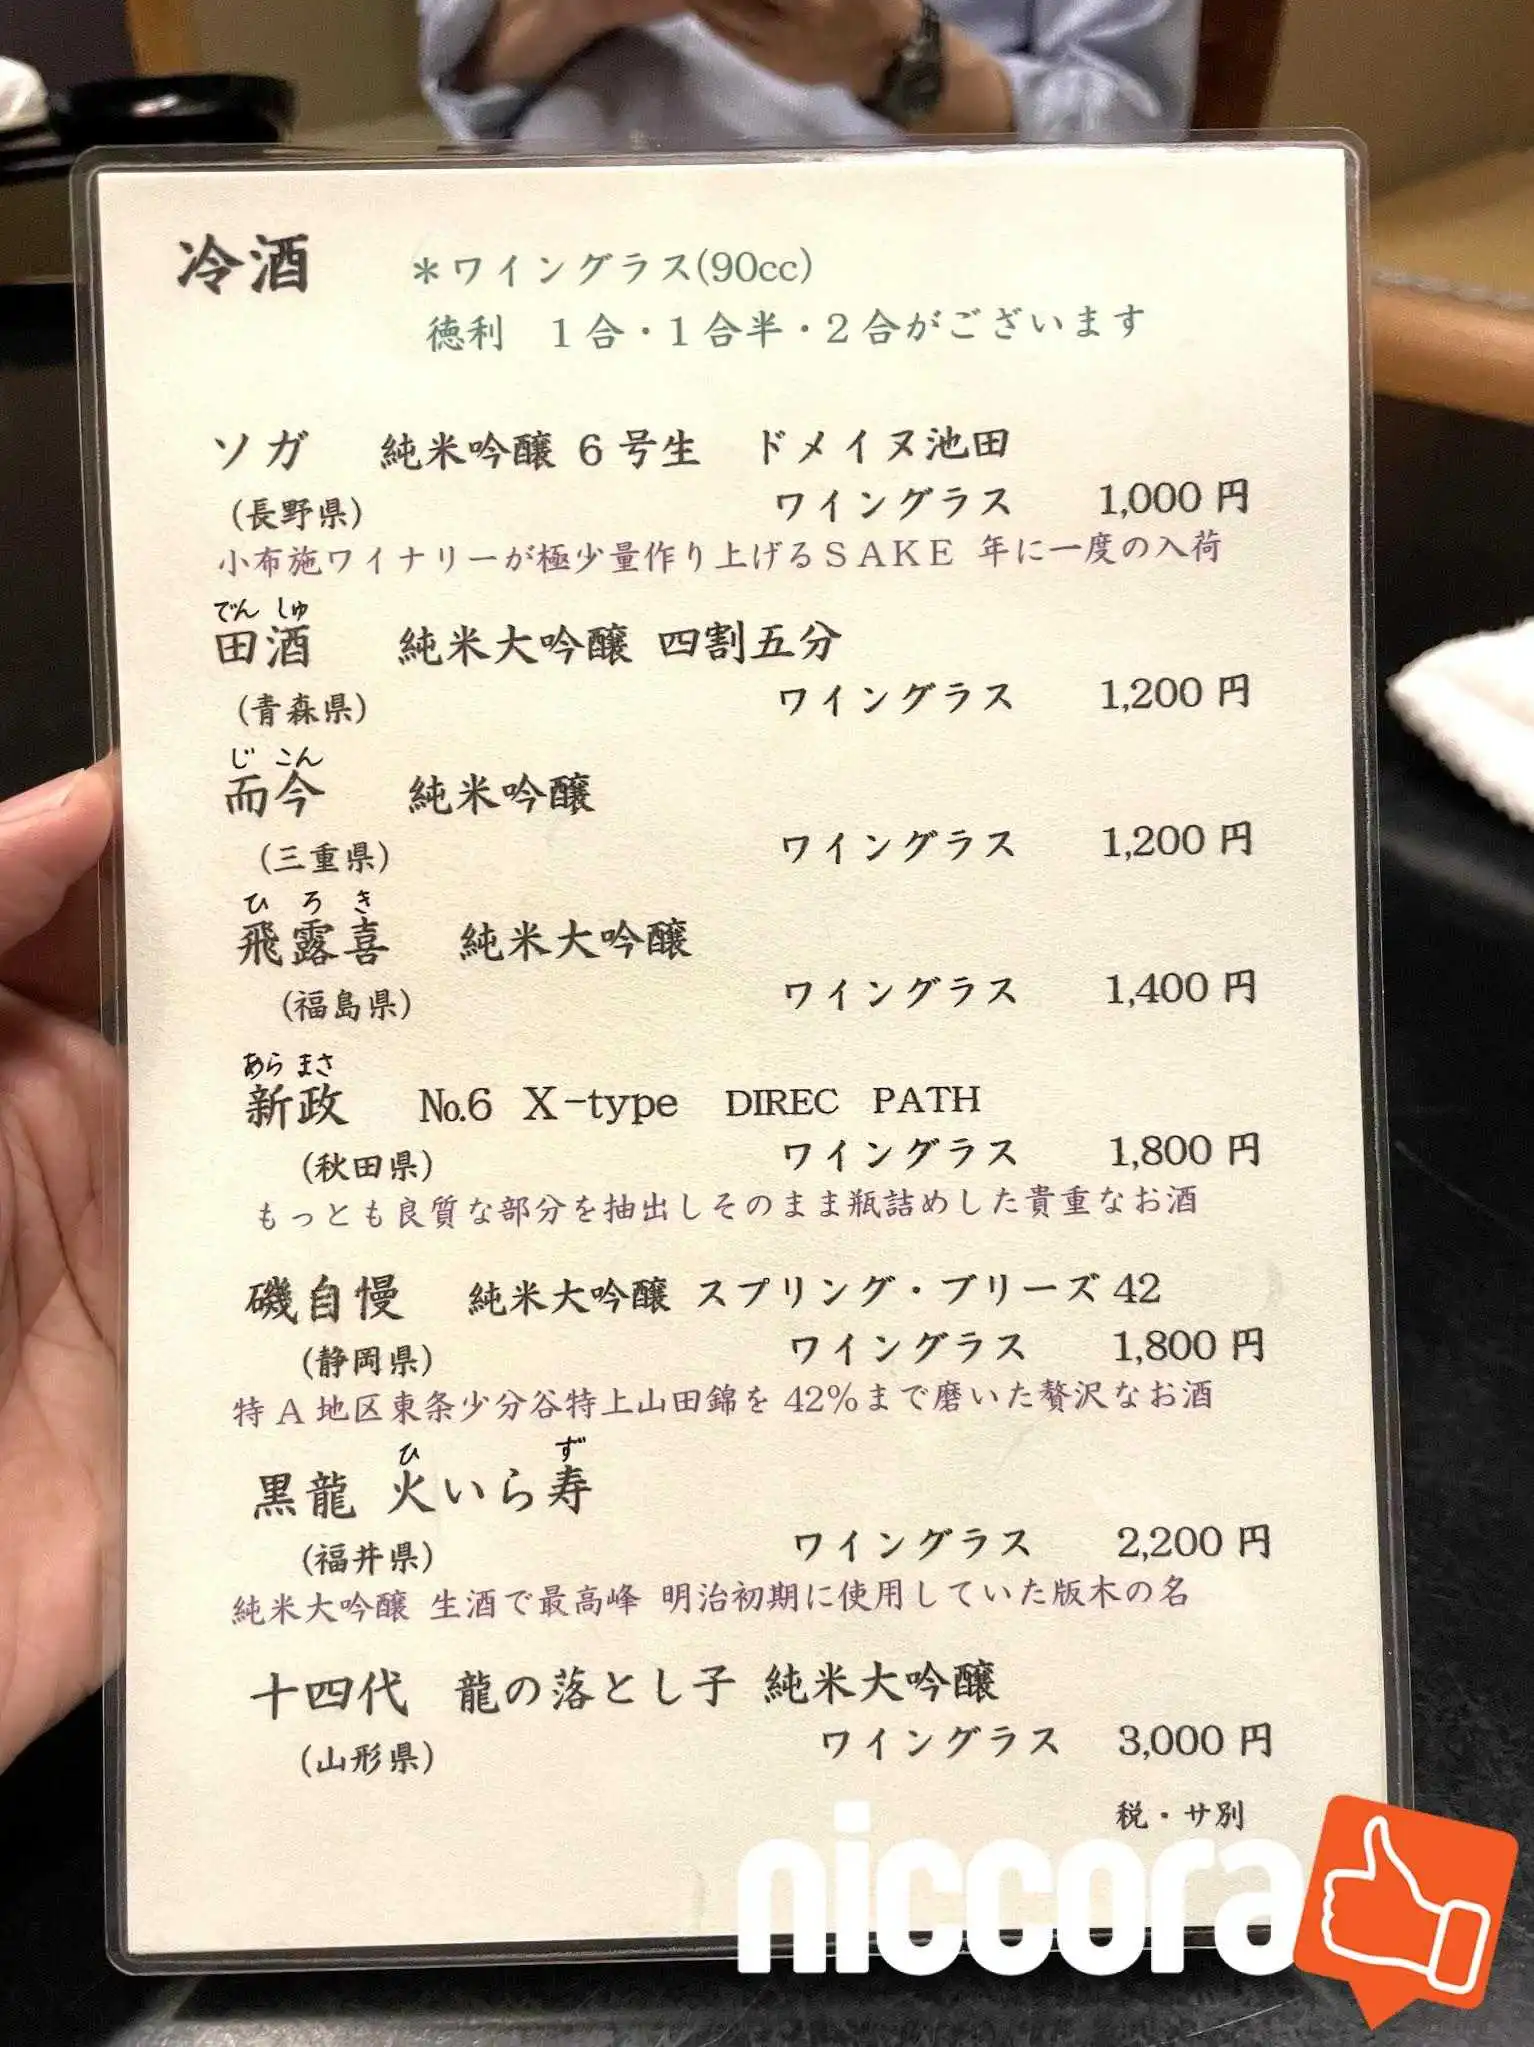 冷酒 ＊ワイングラス(90cc)
徳利 1合・1合半・2合がございます
ソガ 純米吟醸 6号生 ドメイヌ池田
(長野県) ワイングラス 1,000円
小布施ワイナリーが極少量作り上げるＳＡＫＥ 年に一度の入荷
でん しゅ
田酒 純米大吟醸 四割五分
(青森県) ワイングラス 1,200円
じ こん
而今 純米吟醸
(三重県) ワイングラス 1,200円
ひ ろ き
飛露喜 純米大吟醸
(福島県) ワイングラス 1,400円
あら まさ
新政 №6 X-type DIREC PATH
(秋田県) ワイングラス 1,800円
もっとも良質な部分を抽出しそのまま瓶詰めした貴重なお酒
磯自慢 純米大吟醸 スプリング・ブリーズ42
(静岡県) ワイングラス 1,800円
特A地区東条少分谷特上山田錦を42%まで磨いた贅沢なお酒
ひ ず
黒龍 火いら寿
(福井県) ワイングラス 2,200円
純米大吟醸 生酒で最高峰 明治初期に使用していた版木の名
十四代 龍の落とし子 純米大吟醸
(山形県) ワイングラス 3,000円
税・サ別
niccora